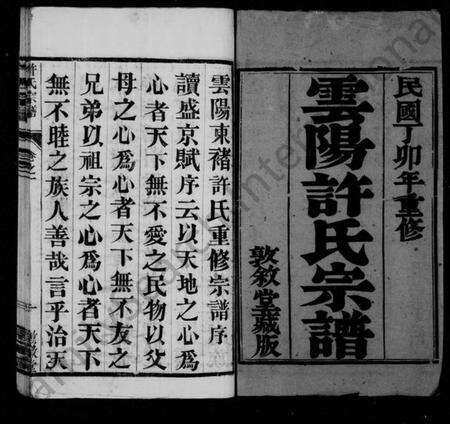 民國丁卯年重修
雲陽許氏宗譜
敦敘堂藏版
雲陽東褚許氏重修宗譜序
讀盛京賦序云以天地之心為
心者天下無不愛之民物以父
母之心為心者天下無不友之
兄弟以祖宗之心為心者天下
無不睦之族人善哉言乎治天
許氏宗譜